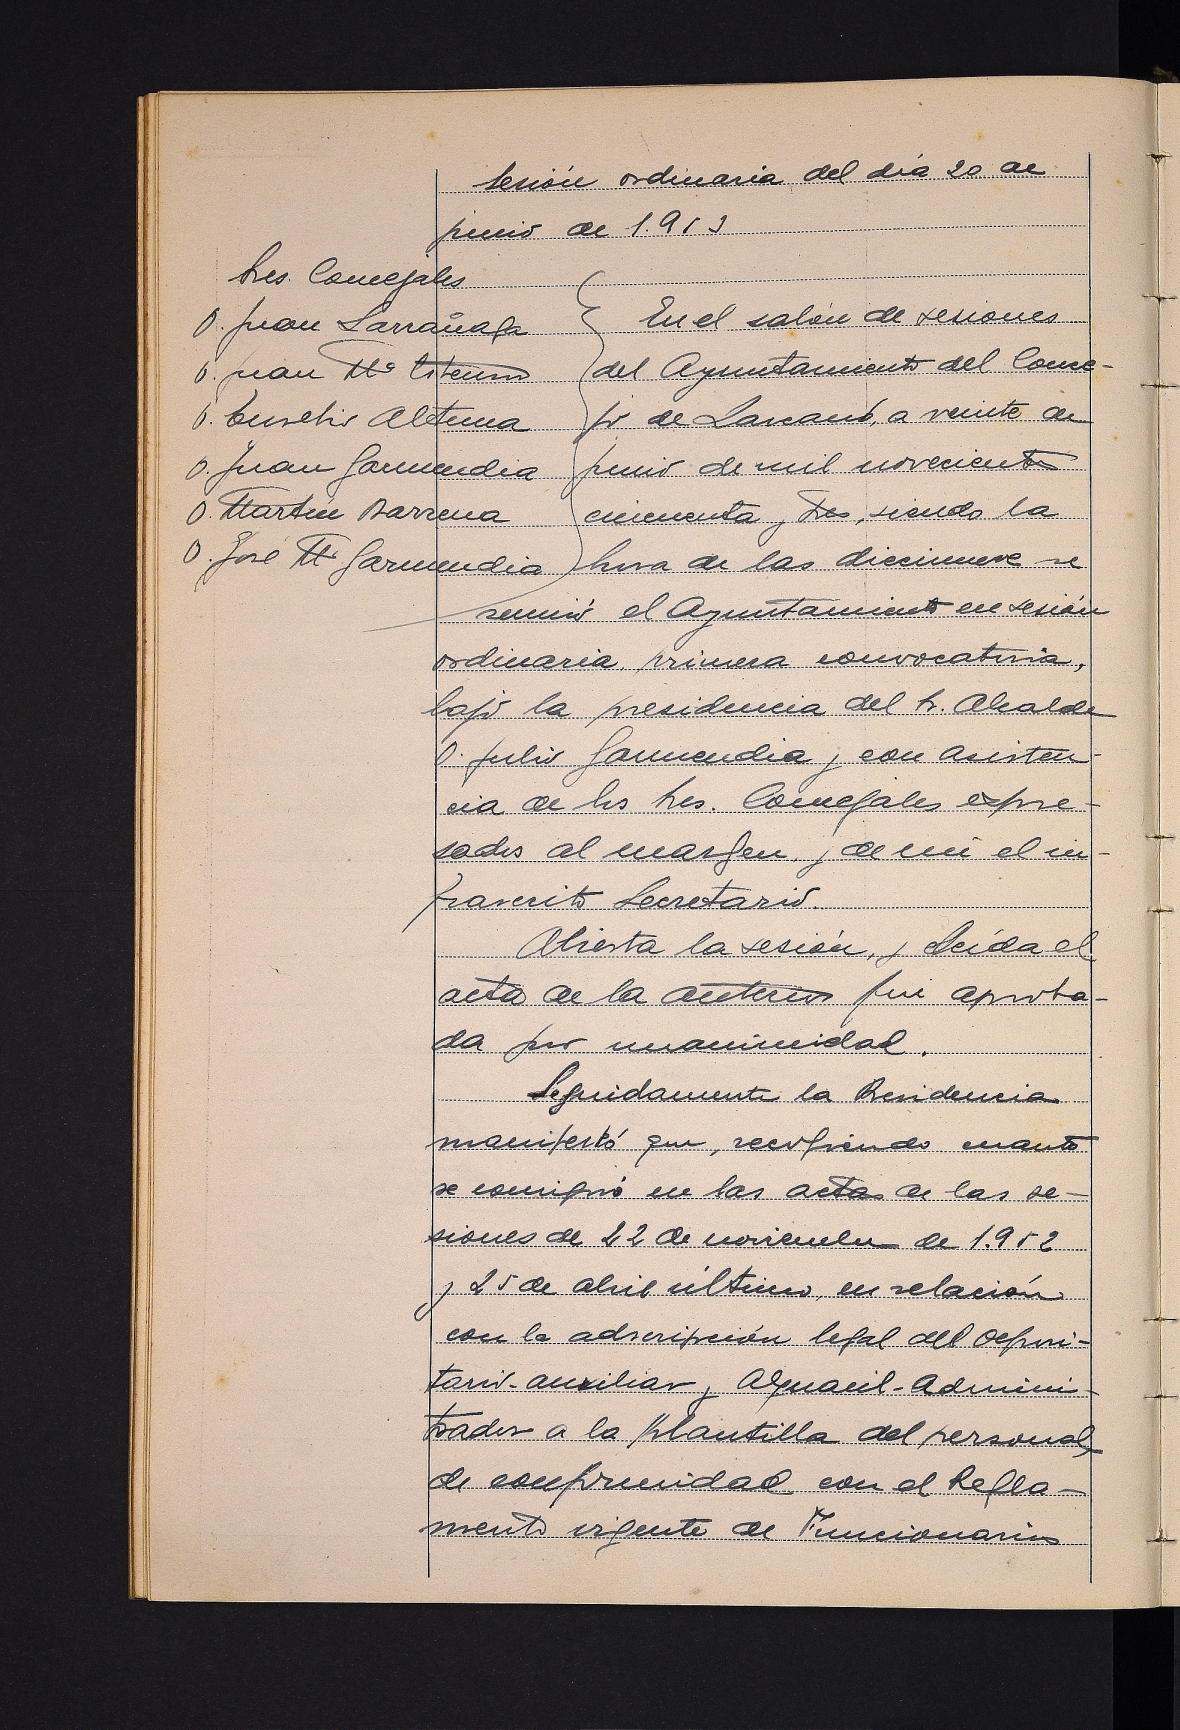 Sesión ordinaria del día 20 de
junio de 1.953
Sres. Concejales
D. Juan Larrañaga
D. Juan Mª
D. Eusebio Altuna
D. Juan Garmendia
D. Martín Barrena
D. José Mª Garmendia
En el salón de sesiones
del Ayuntamiento del Conce-
jo de Lazcano, a veinte de
junio de mil novecientos
cincuenta y tres, siendo la
hora de las diecinueve se
reunió el Ayuntamiento en sesión
ordinaria primera convocatoria,
bajo la presidencia del Sr. Alcalde
D. Julio Garmendia y con asisten-
cia de los Sres. Concejales expre-
sados al margen, y de mi el in-
frascrito Secretario.
Abierta la sesión, y leída el
acta de la anterior fué aproba-
da por unanimidad.
Seguidamente la Presidencia
manifestó que, recogiendo cuanto
se consignó en las actas de las se-
siones de 22 de noviembre de 1.952
y 25 de abril último, en relación
con la adscripción legal del Deposi-
tario-auxiliar y Alguacil-Adminis-
trador a la plantilla del personal,
de conformidad con el Regla-
mento vigente de Funcionarios